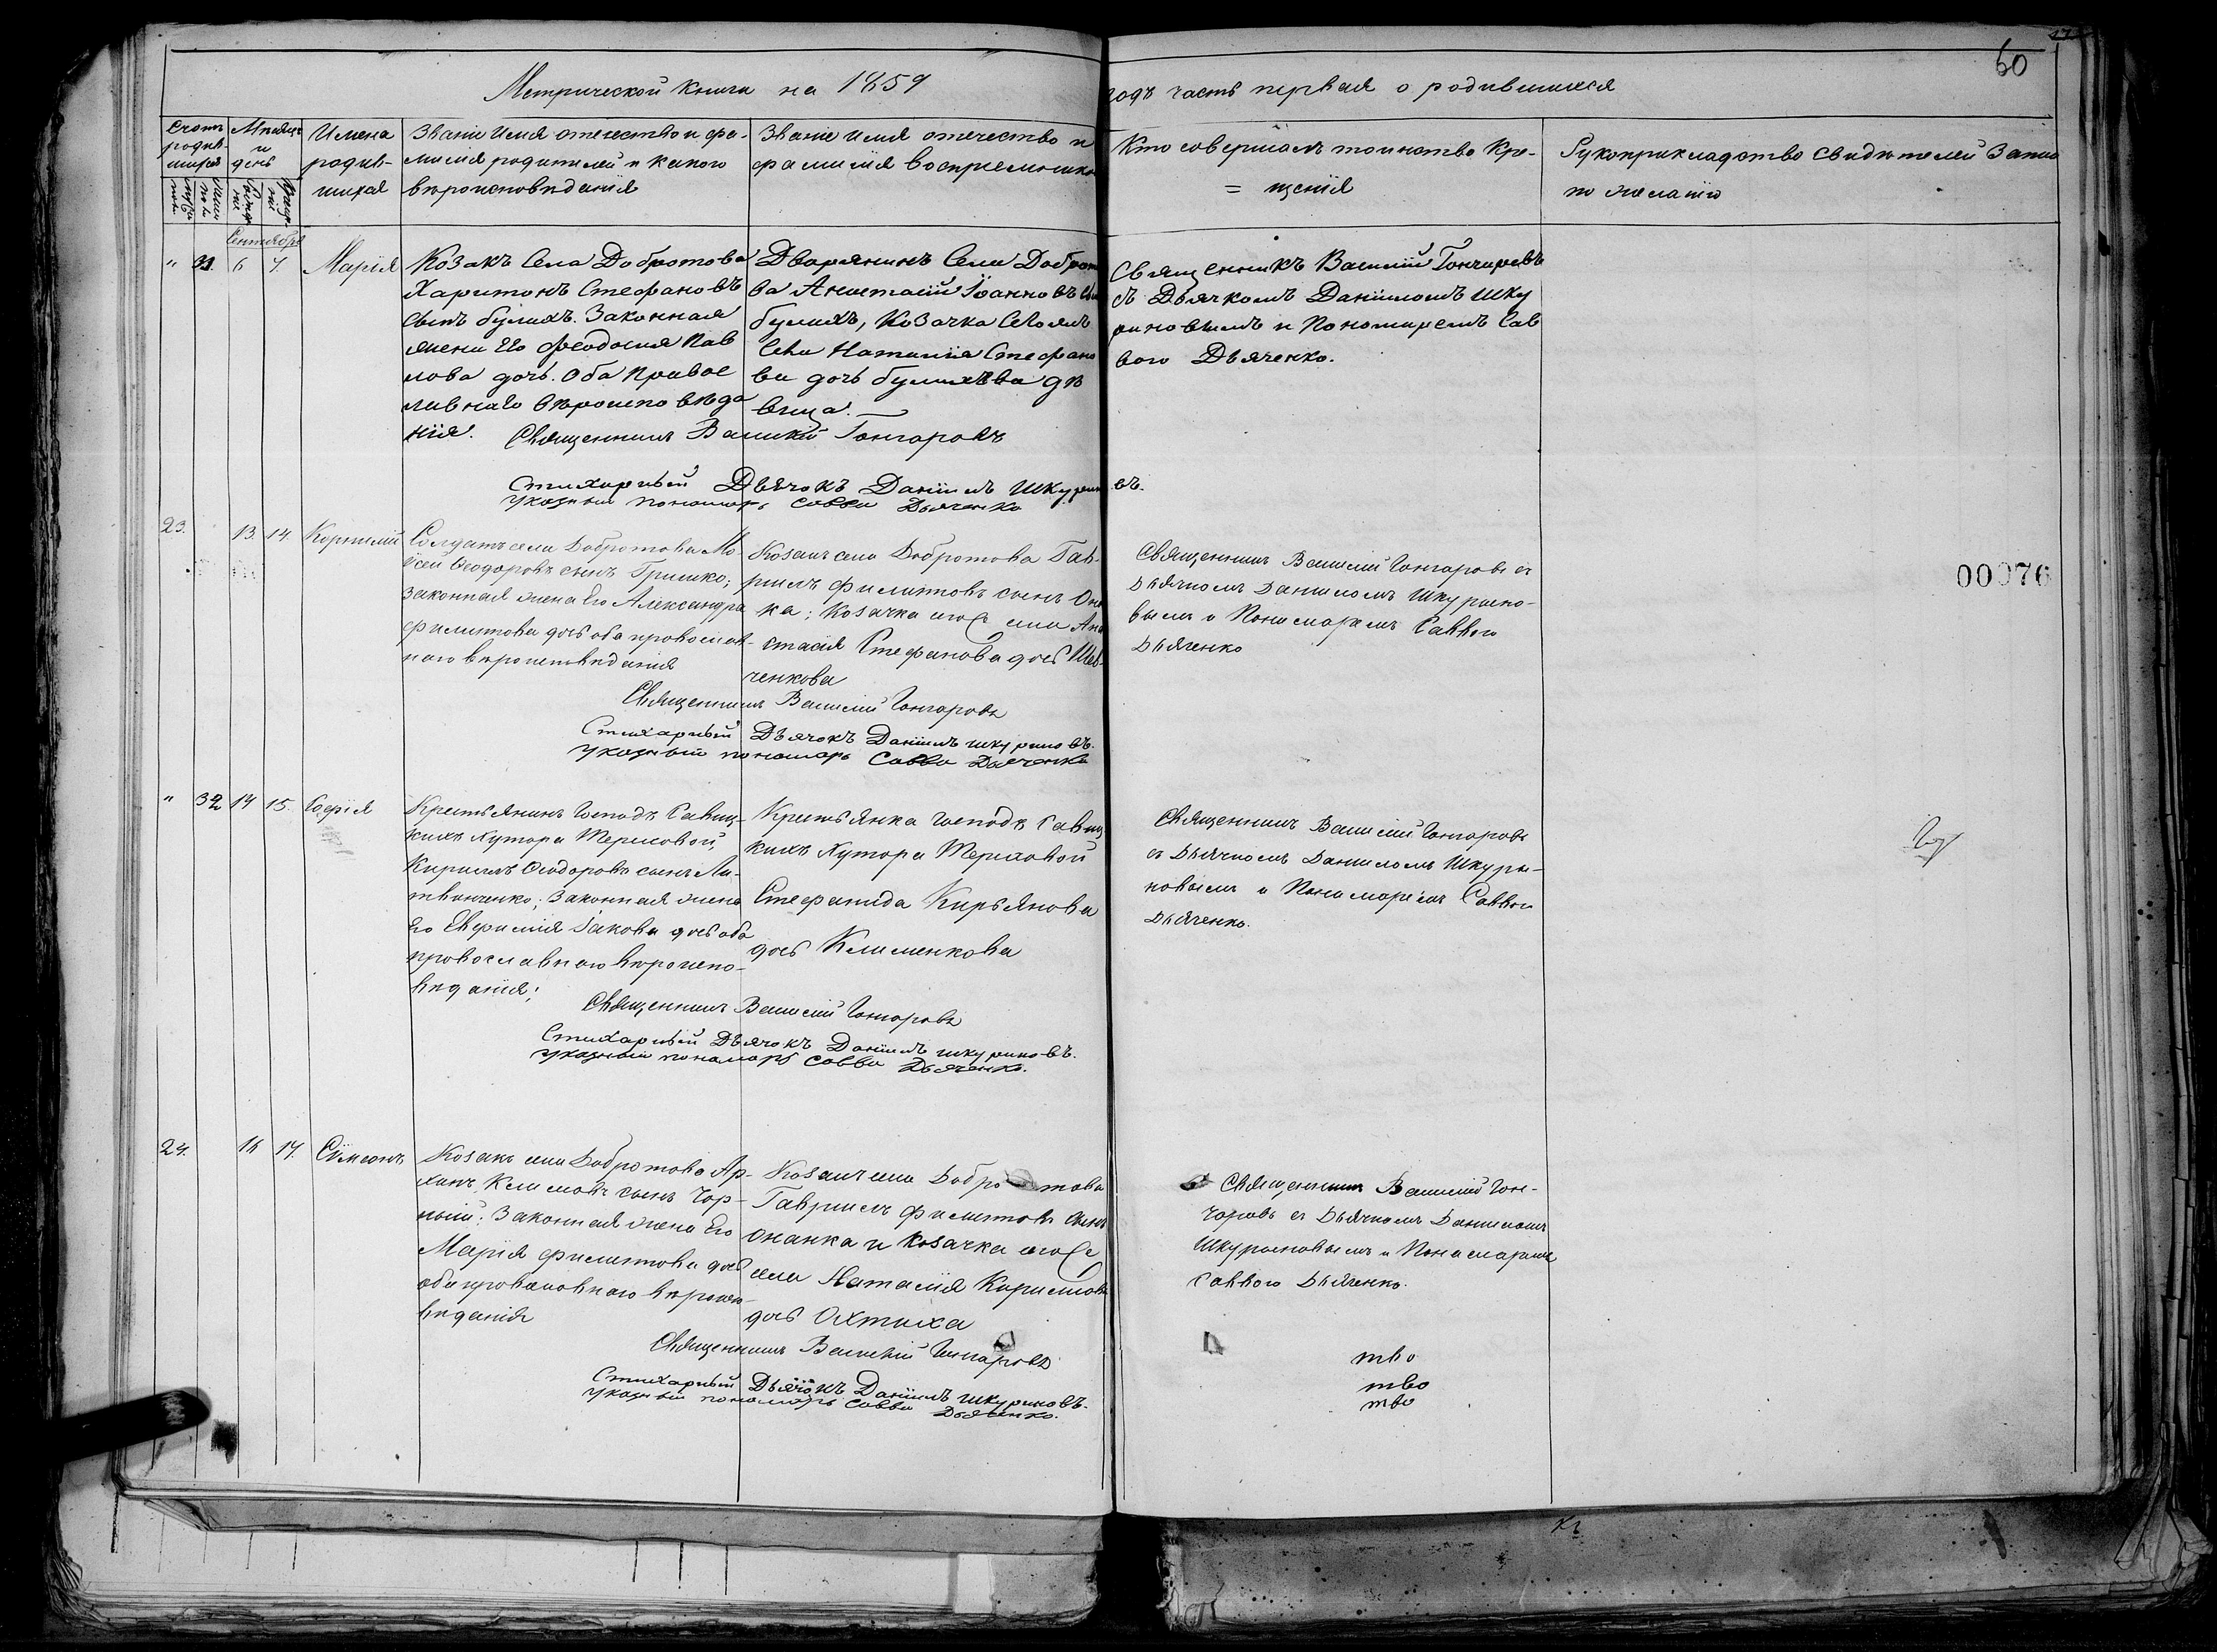 60
Метрической книги на 1859
годъ часть первая о родившихся
Счотъ родив-шихся
Мѣсяцъ и день
Имена
родив-
шихся
Званіе Имя отечество и фа-
милія родителей и какого
вѣроисповѣданія
Званіе имя отечество и
фамилія воспріемников
Кто совершалъ тоинство Кре-
= щенія
Рукоприкладство свидѣтелей Запис
по желанію
Сентября
" 31. 6 7. Марія
Козакъ Села Добротова
Харитонъ Стефановъ
Сынъ булихъ. Законная
жена Его Феодосия Пав
лова дочь. Оба Право
славнаго вѣроисповѣда
нія.
Дворянинъ Села Доброто
ва Анастасій Іоанновъ
булихъ, Козачка
Села Наталия Стефано
ва дочь булихова дѣ
вица.
Священникъ Василій Гончаровъ
съ Дьячкомъ Даниломъ Шку
риновымъ и Пономаремъ Сав
вою Дьяченко.
Священникъ Василій Гончаровъ
Стихарный Дьячокъ Даніилъ Шкуриновъ.
указный пономарь Савва Дьяченко
23. 13. 14. Корнилій
Солдатъ села Добротова Мо
ѵсей Ѳеодоровъ сынъ Гришко;
законная жена Его Александра
Филиппова дочь оба православ-
наго вѣроисповѣданія
Козакъ села Добротова Гав-
риилъ Филипповъ сынъ Она
ка; Козачка того же села Ана
стасія Стефанова дочь Шев-
ченкова
Священникъ Василій Гончаровъ съ
Дьячкомъ Даниломъ Шкурино-
вымъ и Пономаремъ Саввою
Дьяченко
00076
Священникъ Василій Гончаровъ
Стихарный Дьячокъ Даніилъ Шкуриновъ.
указный пономарь Савва Дьяченко
" 32 14 15. Софія
Крестьянинъ Господъ Савиц-
кихъ Хутора Терновой
Кириллъ Ѳеодоровъ сынъ Ли-
твинченко; Законная жена
Его Евфимія Іакова дочь оба
православнаго вѣроиспо-
вѣданія;
Крестьянка Господъ Савиц
кихъ Хутора Терновой
Стефанида Кирьянова
дочь Клименкова
Священникъ Василій Гончаровъ
съ Дьячкомъ Даниломъ Шкури-
новымъ и Пономаремъ Саввою
Дьяченко.
Священникъ Василій Гончаровъ
Стихарный Дьячокъ Даніилъ Шкуриновъ.
указный пономарь Савва Дьяченко.
24. 16 17. Сѵмеонъ
Козакъ села Добротова Ар-
хипъ Климовъ сынъ Чор-
ный; Законная жена Его
Марія Филиппова дочь
оба православнаго вѣроиспо-
вѣданія
Козакъ села Добротова
Гавриилъ Филипповъ сынъ
Онанка и Козачка того же
села Наталія Кириллова
дочь Охтиха
Священникъ Василій Гон-
чаровъ съ Дьячкомъ Даниломъ
Шкуриновымъ и Пономаремъ
Саввою Дьяченко.
Священникъ Василій Гончаровъ
Стихарный Дьячокъ Даніилъ Шкуриновъ.
указный пономарь Савва Дьяченко.
тво
тво
тво